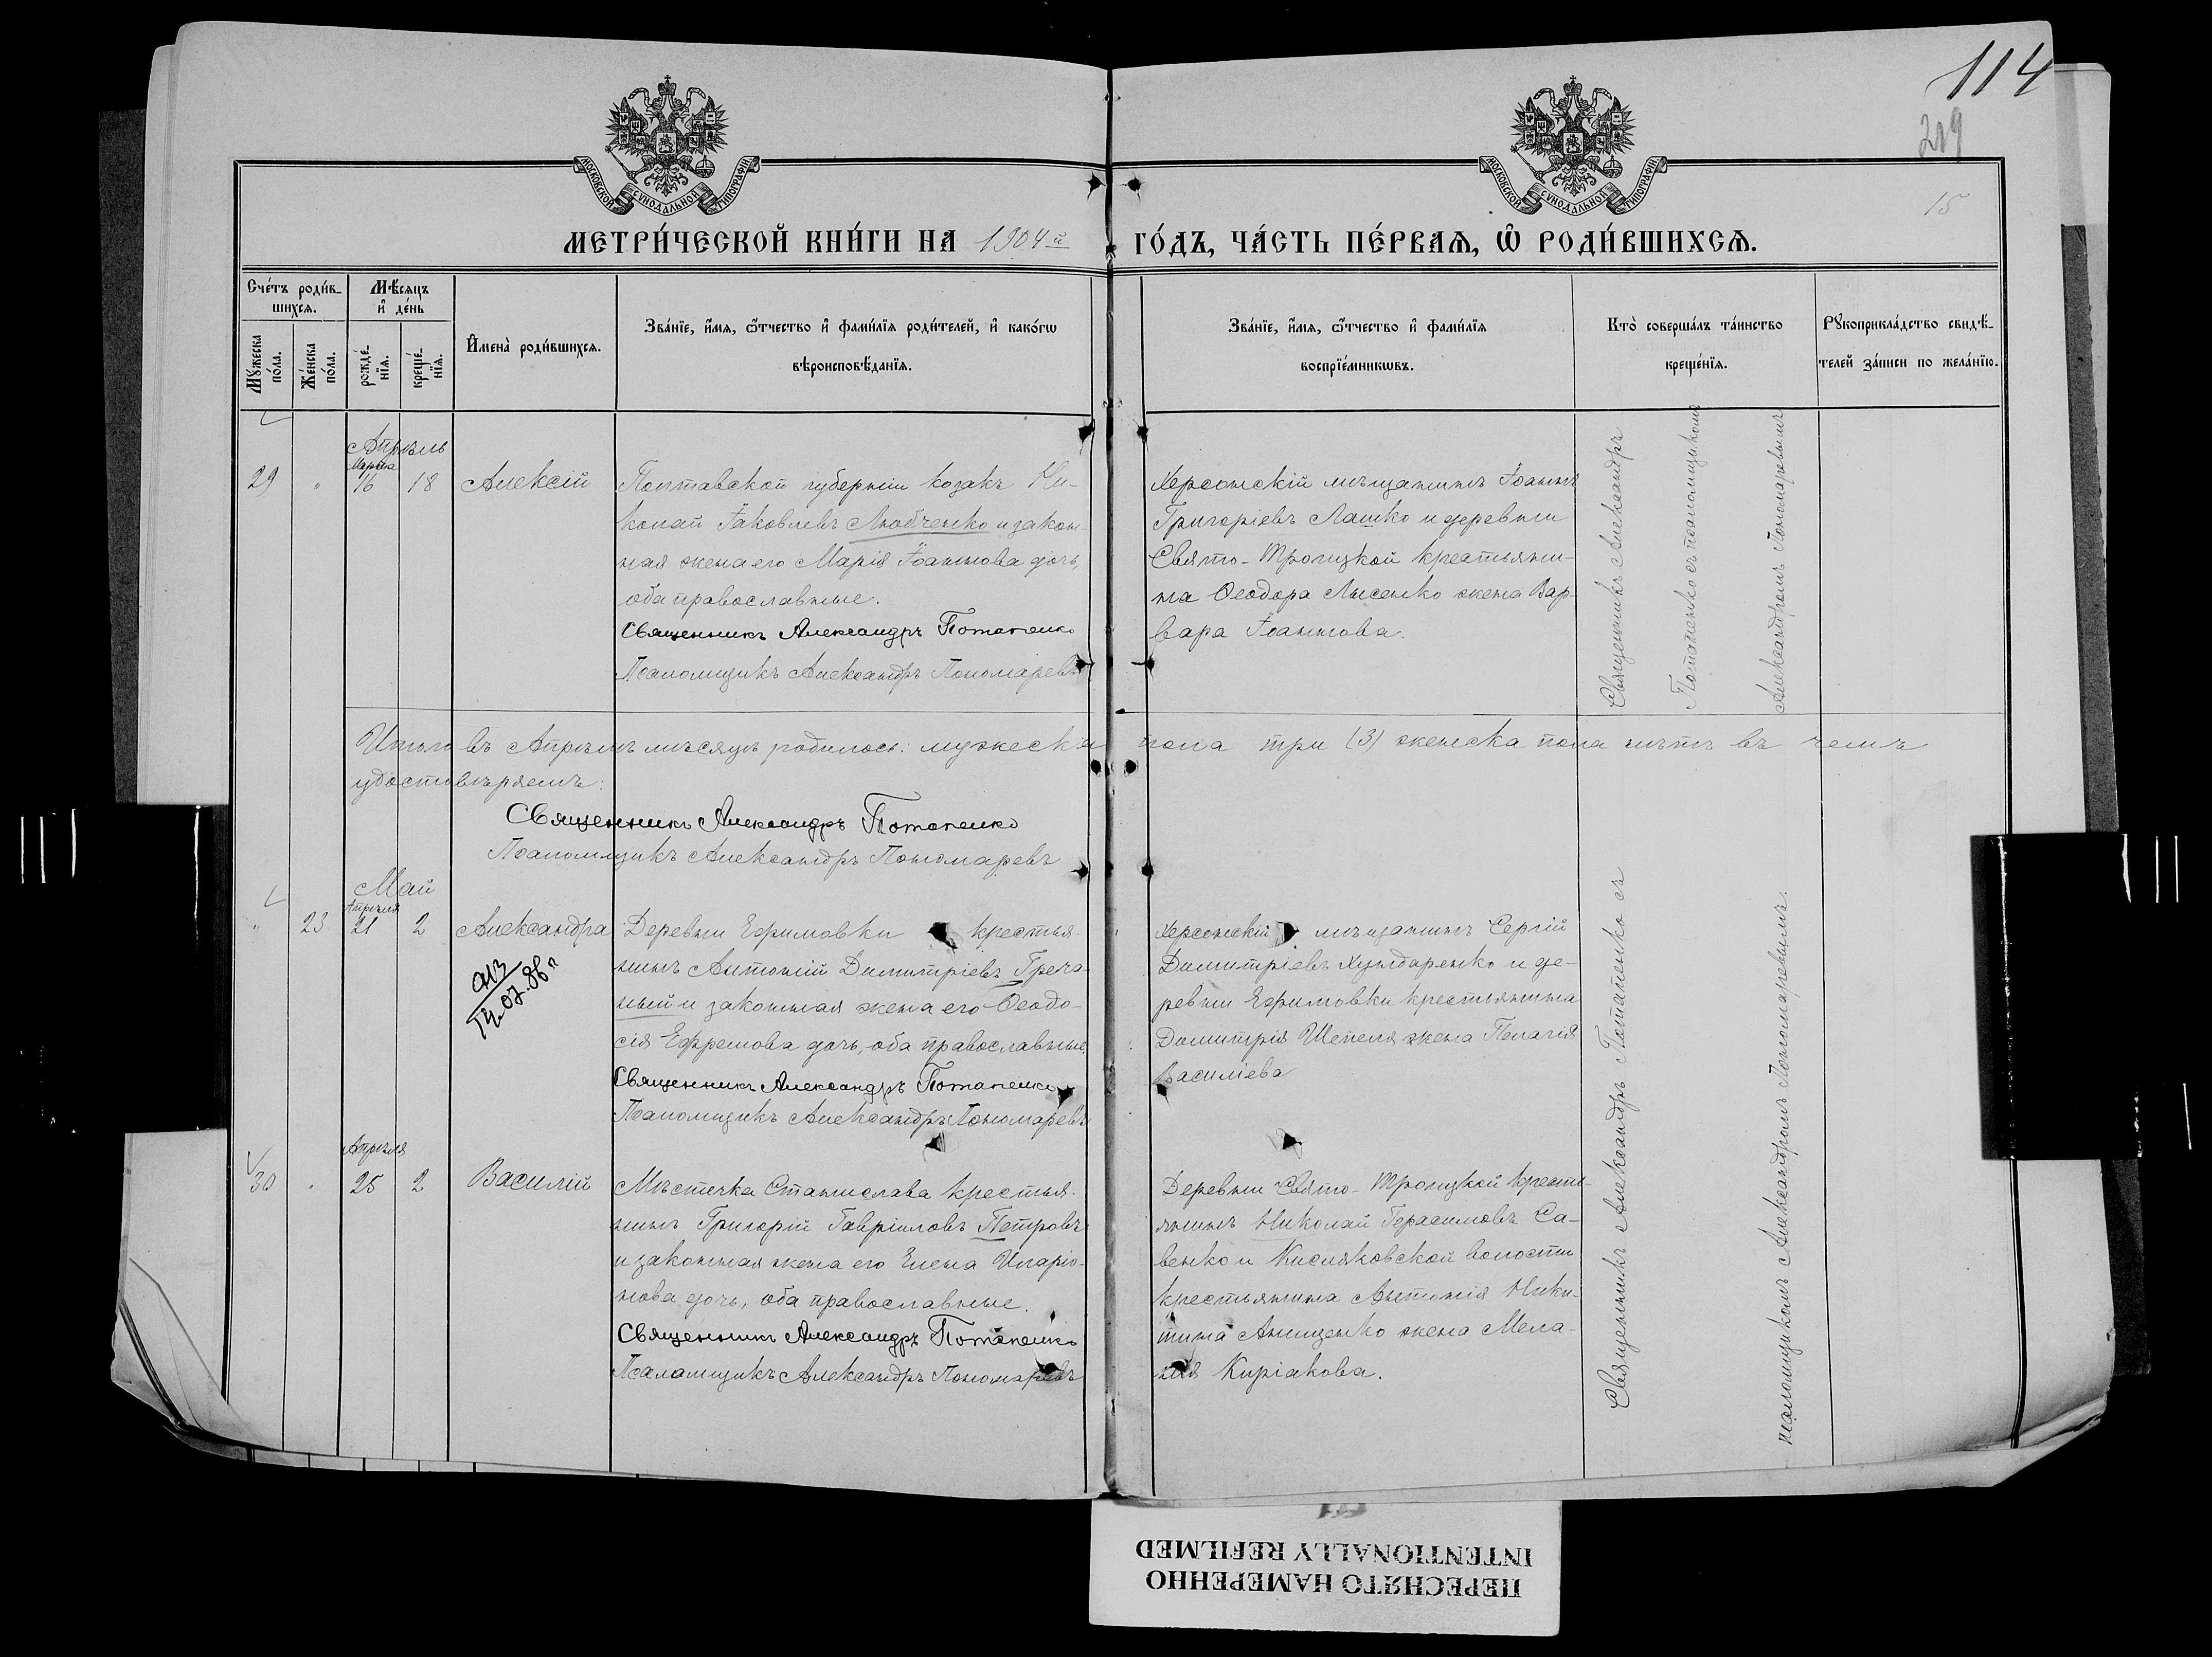 114
219
15
МОСКОВСКОЙ СѴНОДАЛЬНОЙ ТИПОГРАФІИ
МОСКОВСКОЙ СѴНОДАЛЬНОЙ ТИПОГРАФІИ
МЕТРИ́ЧЕСКОЙ КНИ́ГИ НА 1904й ГО́ДЪ, ЧА́СТЬ ПЕ́РВАѦ, Ѡ҆ РОДИ́ВШИХСѦ.
Сче́тъ роди́в-
шихсѧ.
Мꙋ́жеска по́ла.
Же́нска по́ла.
Мѣ́сѧцъ
и҆ де́нь
рожде́-
нїѧ.
креще́-
нїѧ.
И҆мена̀ роди́вшихсѧ.
Зва́нїе, и҆́мѧ, ѻ҆́тчество и҆ фами́лїѧ роди́телей, и҆ како́гѡ
вѣроисповѣ́данїѧ.
Зва́нїе, и҆́мѧ, ѻ҆́тчество и҆ фами́лїѧ
воспрїе́мникѡвъ.
Кто̀ соверша́лъ та́инство
креще́нїѧ.
Рꙋкоприкла́дство свидѣ́-
телей за́писи по жела́нїю.
Апрѣль
Марта
29 " 16 18 Алексій
Полтавской губерніи козакъ Ни-
колай Іаковлевъ Любченко и закон-
ная жена его Марія Іоаннова дочь,
оба православные.
Священникъ Александръ Потапенко
Псаломщикъ Александръ Пономаревъ
Херсонскій мѣщанинъ Іоаннъ
Григоріевъ Лашко и деревни
Свято-Троицкой крестьяни-
на Ѳеодора Лысенко жена Вар-
вара Іоаннова.
Священникъ Александръ
Потапенко съ псаломщикомъ
Александромъ Пономаревымъ
Итого въ Апрѣлѣ мѣсяцѣ родилось: мужеска пола три (3) женска пола нѣтъ въ чемъ
удостовѣряемъ:
Священникъ Александръ Потапенко
Псаломщикъ Александръ Пономаревъ
Май
Апрѣля
" 23 21 2 Александра
Деревни Ефимовки крестья-
нинъ Антоній Димитріевъ Греча-
ный и законная жена его Ѳеодо-
сія Ефремова дочь, оба православные.
Священникъ Александръ Потапенко
Псаломщикъ Александръ Пономаревъ
Херсонскій мѣщанинъ Сергій
Димитріевъ Хундаренко и де-
ревни Ефимовки крестьянина
Димитрія Шепеля жена Пелагія
Василіева
Апрѣля
30 " 25 2 Василій
Мѣстечка Станислава крестья-
нинъ Григорій Гавріиловъ Петровъ
и законная жена его Елена Иларіо-
нова дочь, оба православные.
Священникъ Александръ Потапенко
Псаломщикъ Александръ Пономаревъ
Деревни Свято-Троицкой кресть-
янинъ Николай Герасимовъ Са-
венко и Кисляковской волости
крестьянина Антонія Ники-
тина Анищенко жена Мела-
нія Киріакова.
Священникъ Александръ Потапенко съ
псаломщикомъ Александромъ Пономаревымъ.
ПЕРЕСНЯТО НАМЕРЕННО
INTENTIONALLY REFILMED